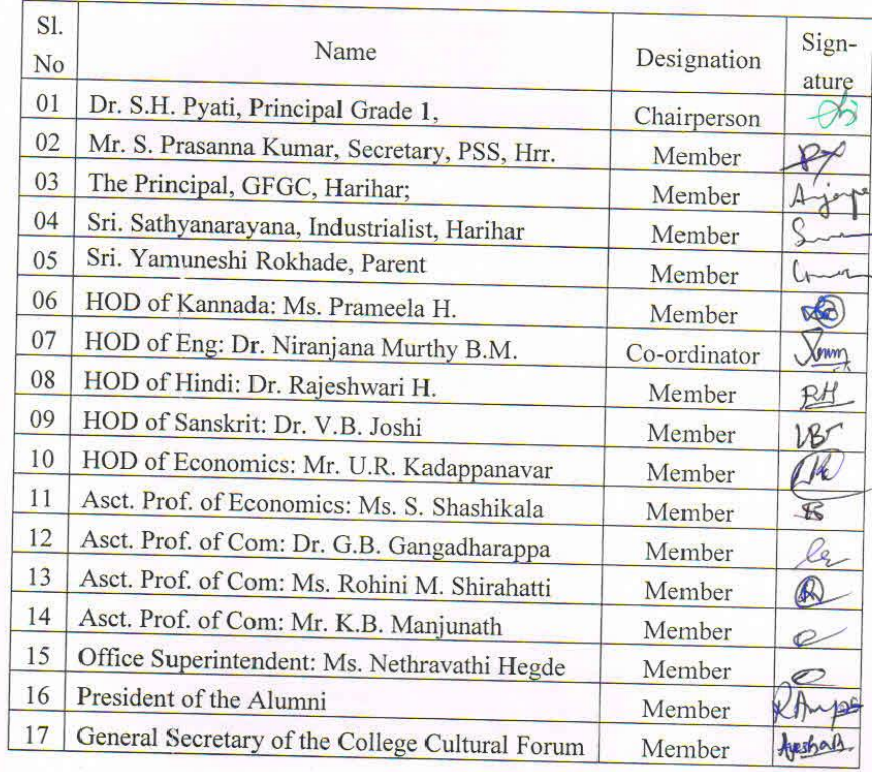 Sl. No Name Designation Sign-ature
01 Dr. S.H. Pyati, Principal Grade 1, Chairperson
02 Mr. S. Prasanna Kumar, Secretary, PSS, Hrr. Member
03 The Principal, GFGC, Harihar; Member
04 Sri. Sathyanarayana, Industrialist, Harihar Member
05 Sri. Yamuneshi Rokhade, Parent Member
06 HOD of Kannada: Ms. Prameela H. Member
07 HOD of Eng: Dr. Niranjana Murthy B.M. Co-ordinator
08 HOD of Hindi: Dr. Rajeshwari H. Member RH
09 HOD of Sanskrit: Dr. V.B. Joshi Member
10 HOD of Economics: Mr. U.R. Kadappanavar Member
11 Asct. Prof. of Economics: Ms. S. Shashikala Member
12 Asct. Prof. of Com: Dr. G.B. Gangadharappa Member
13 Asct. Prof. of Com: Ms. Rohini M. Shirahatti Member
14 Asct. Prof. of Com: Mr. K.B. Manjunath Member
15 Office Superintendent: Ms. Nethravathi Hegde Member
16 President of the Alumni Member
17 General Secretary of the College Cultural Forum Member